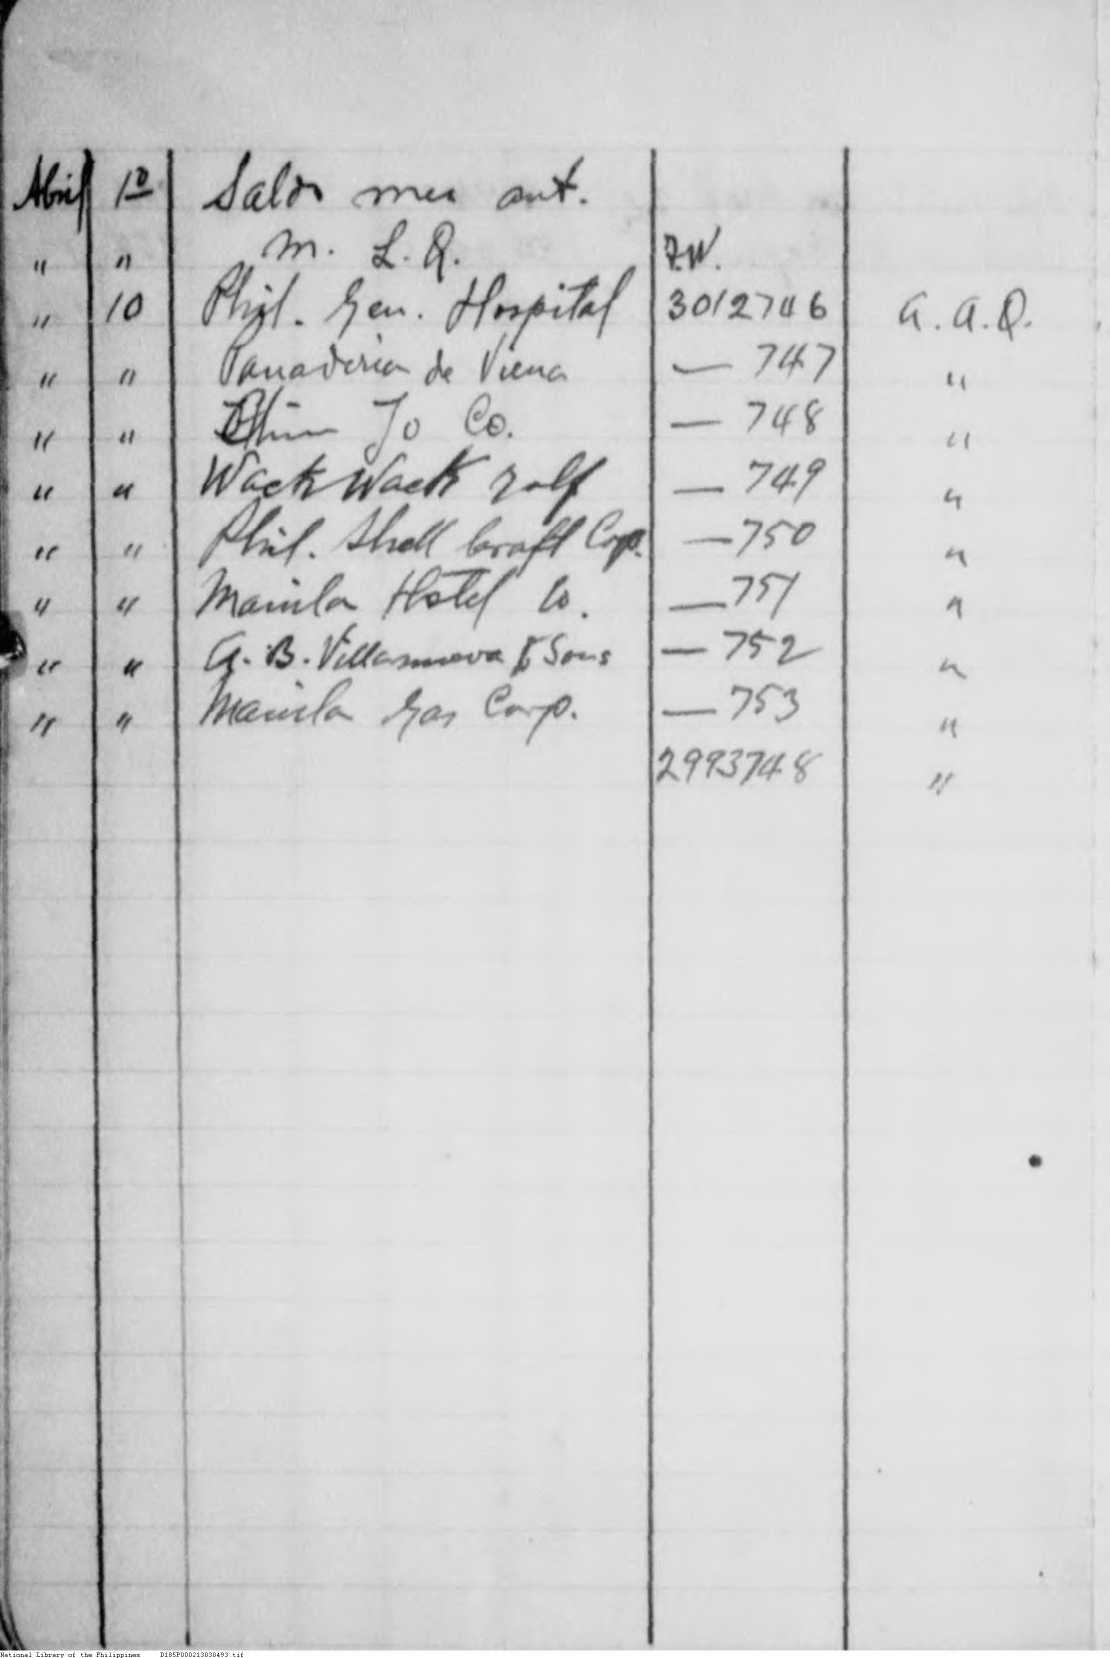 Abril 10 Saldo mes ant.
" " M. L. Q. F.W.
" 10 Phil. Gen. Hospital 3012746 A. A. Q.
" " Panaderia de Viena — 747 "
" " Jo Co. — 748 "
" " Wack Wack Golf — 749 "
" " Phil. Shell Craft Corp. — 750 "
" " Manila Hotel Co. — 751 "
" " A. B. Villanueva & Sons — 752 "
" " Manila Gas Corp. — 753 "
2993748 "
National Library of the Philippines D185P000213030493.tif